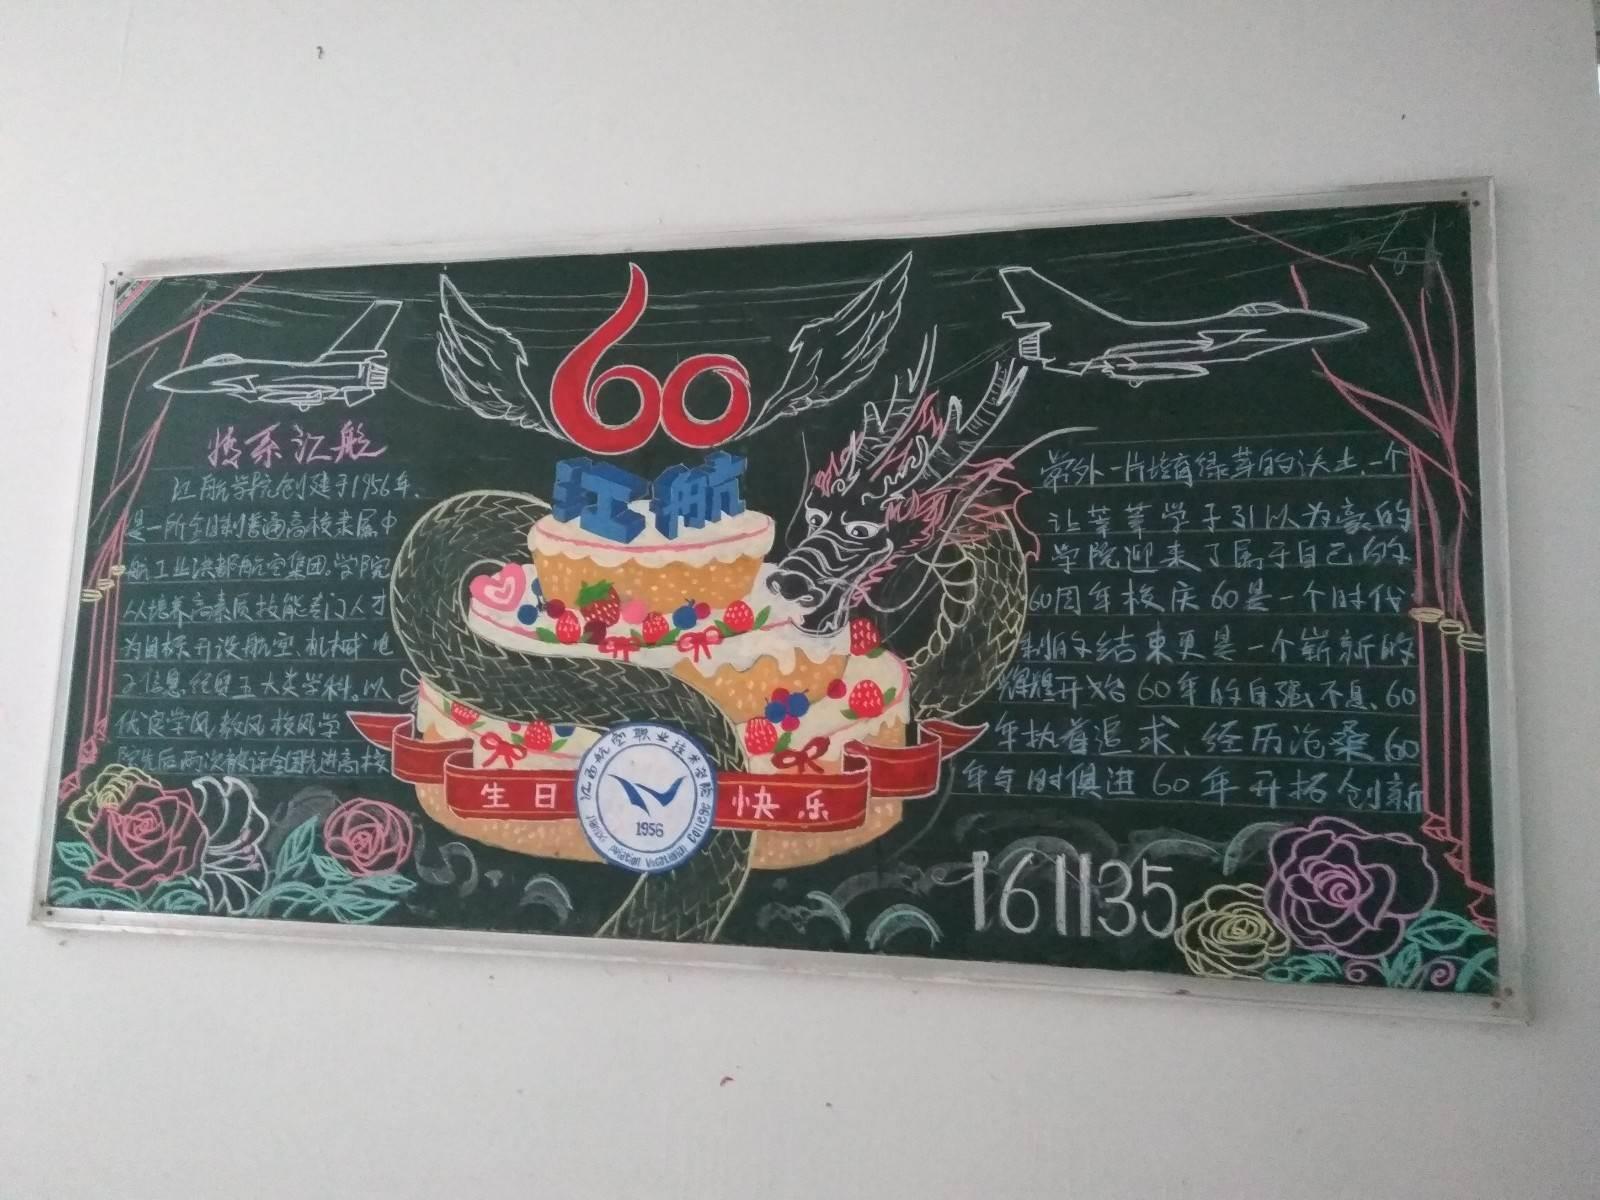 60
江航
情系江航
江航学院创建于1956年、
是一所全日制普通高校隶属中
航工业洪都航空集团。学院
以培养高素质技能专门人才
为目标开设航空、机械、电
子信息、经贸五大类学科。以
优良学风、教风、校风学
院先后两次被评全国先进高校
生日
快乐
江西航空职业技术学院
1956
Jiangxi Aviation Vocational College
学外一片培育绿芽的沃土、一个
让莘莘学子引以为豪的
学院迎来了属于自己的
60周年校庆60是一个时代
的结束更是一个崭新的
辉煌开始60年的自强不息、60
年执着追求、经历沧桑60
年与时俱进60年开拓创新
161135